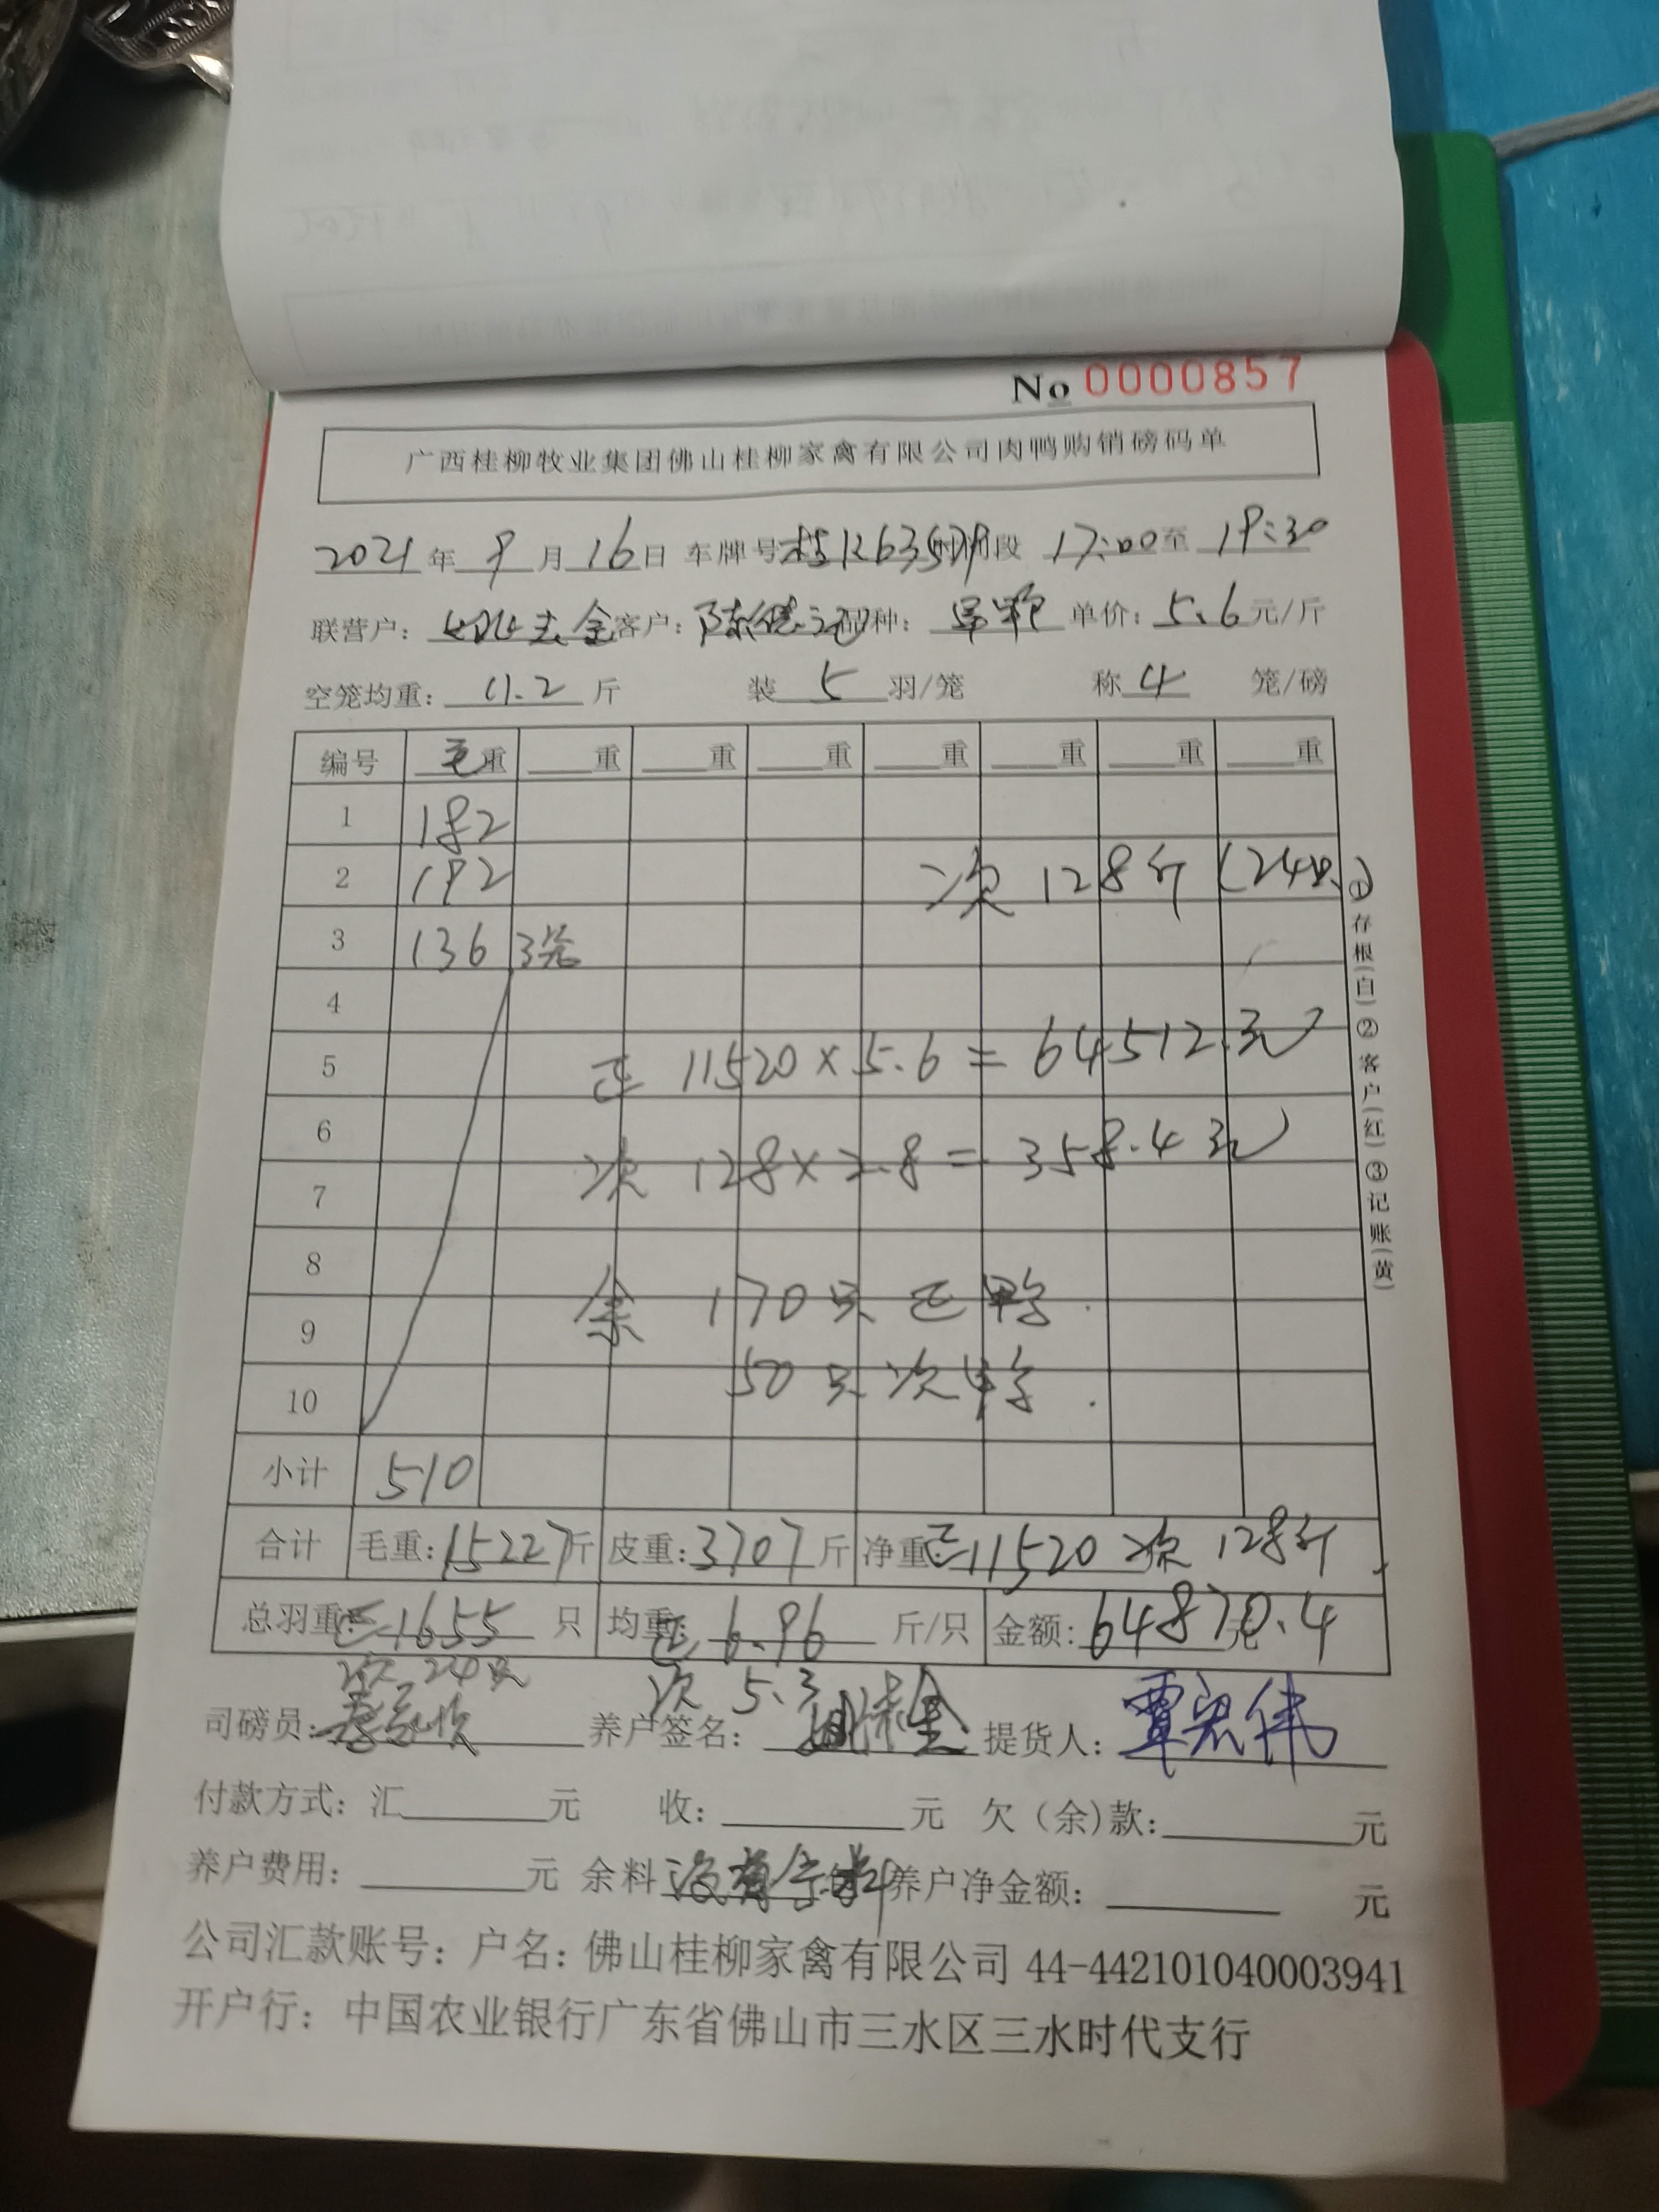 No 0000857
广西桂柳牧业集团佛山桂柳家禽有限公司肉鸭购销磅码单
2021年9月16日 车牌号 段 17:00至19:30
联营户: 客户: 品种: 单价:5.6元/斤
空笼均重: 11.2斤 装5羽/笼 称4笼/磅
编号 毛重 重 重 重 重 重 重 重
1 182
2 192 次 128斤 (24只)
3 136 3笼
4
5 正 11520×5.6=64512元
6
次 128×2.8=358.4元
7
8
余 170只正鸭
9
50只次鸭
10
小计 510
合计 毛重:15227斤 皮重:3707斤 净重:正11520 次128斤
总羽重:正1655只 均重:正6.96斤/只 金额:64870.4元
次24只 次5.3
司磅员: 养户签名: 提货人:覃宏伟
付款方式:汇 元 收: 元 欠(余)款: 元
养户费用: 元 余料 没有余料 养户净金额: 元
公司汇款账号:户名:佛山桂柳家禽有限公司 44-442101040003941
开户行:中国农业银行广东省佛山市三水区三水时代支行
①存根(白)②客户(红)③记账(黄)